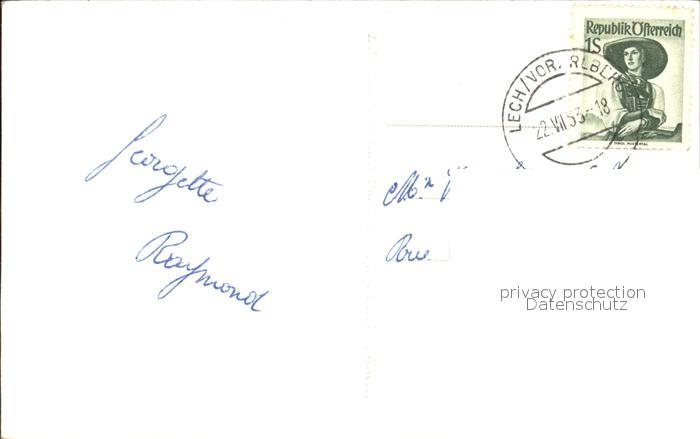 Republik Österreich
1S
LECH/VORARLBERG
22.VII 53-18
Georgette
Raymond
Mr
Rue
privacy protection
Datenschutz